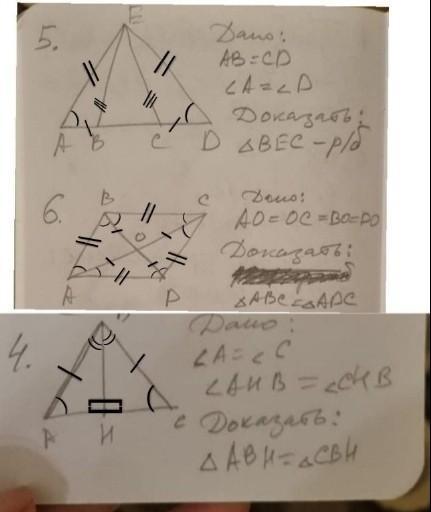 5.
E
A B C D
Дано:
AB=CD
∠A=∠D
Доказать:
△BEC – р/б
6.
B C
O
A D
Дано:
AO=OC=BO=DO
Доказать:
△ABC=△ADC
4.
A H C
Дано:
∠A=∠C
∠AHB=∠CHB
Доказать:
△ABH=△CBH